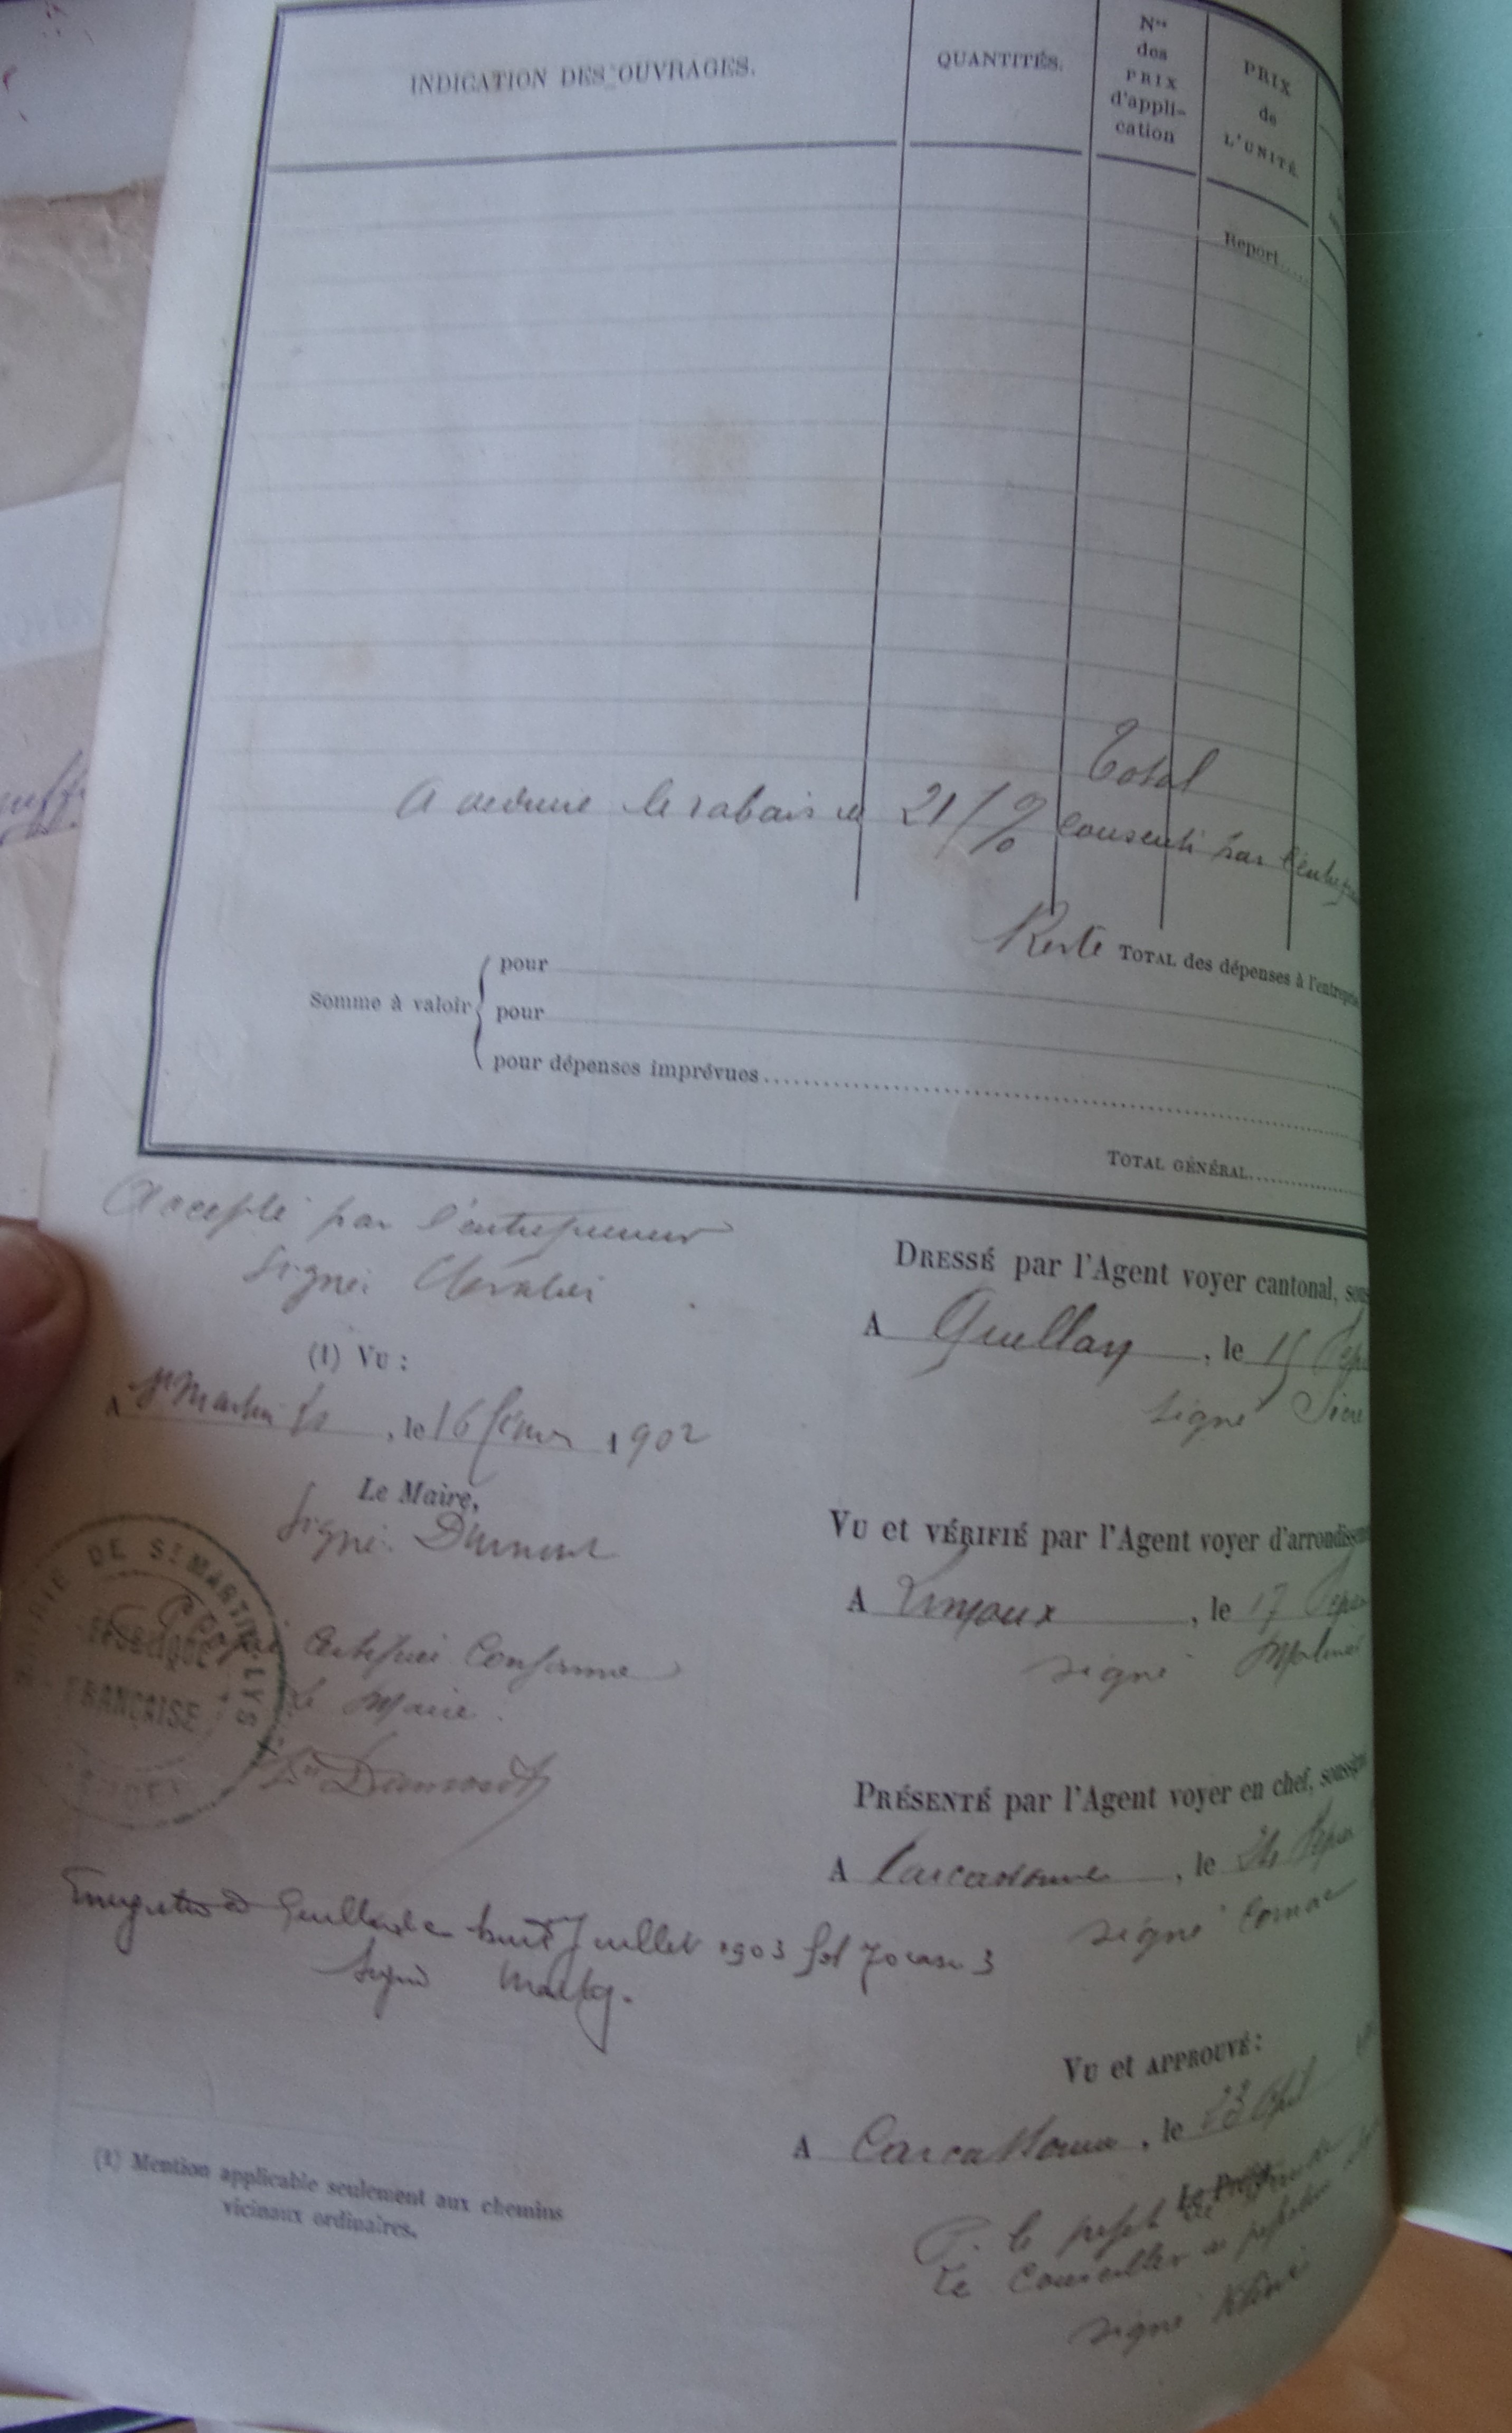 INDICATION DES OUVRAGES.
QUANTITÉS.
Nos
des
PRIX
d'appli-
cation
PRIX
de
L'UNITÉ
Report.....
Total
A déduire le rabais de 21 % consenti par l'entrep
Reste TOTAL des dépenses à l'entreprise
Somme à valoir
pour
pour
pour dépenses imprévues
TOTAL GÉNÉRAL
Accepté par l'entrepreneur
Signé:
(1) Vu :
A St Martin Lys, le 16 1902
Le Maire,
Signé:
MAIRIE DE ST MARTIN-LYS
RÉPUBLIQUE
FRANÇAISE
Copie Certifiée Conforme
Le Maire.
Enregistré à Quillan le huit Juillet 1903 fol 70 case 3
Signé
(1) Mention applicable seulement aux chemins
vicinaux ordinaires.
DRESSÉ par l'Agent voyer cantonal, sous
A Quillan, le 15
signé
VU et VÉRIFIÉ par l'Agent voyer d'arrondissem
A Limoux, le 17
signé
PRÉSENTÉ par l'Agent voyer en chef, soussigné
A Carcassonne, le
signé
VU et APPROUVÉ :
A Carcassonne, le 23
Le Préfet
P. le préfet
Le Conseiller de préfecture
signé